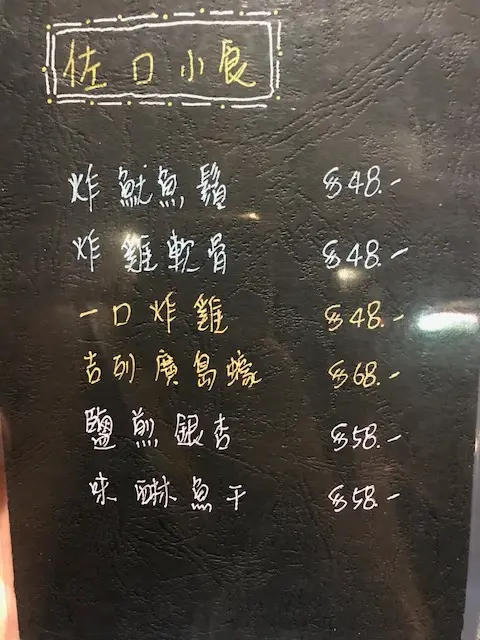 佐口小食
炸魷魚鬚 $48.-
炸雞軟骨 $48.-
一口炸雞 $48.-
吉列廣島蠔 $68.-
鹽煎銀杏 $58.-
味醂魚干 $58.-